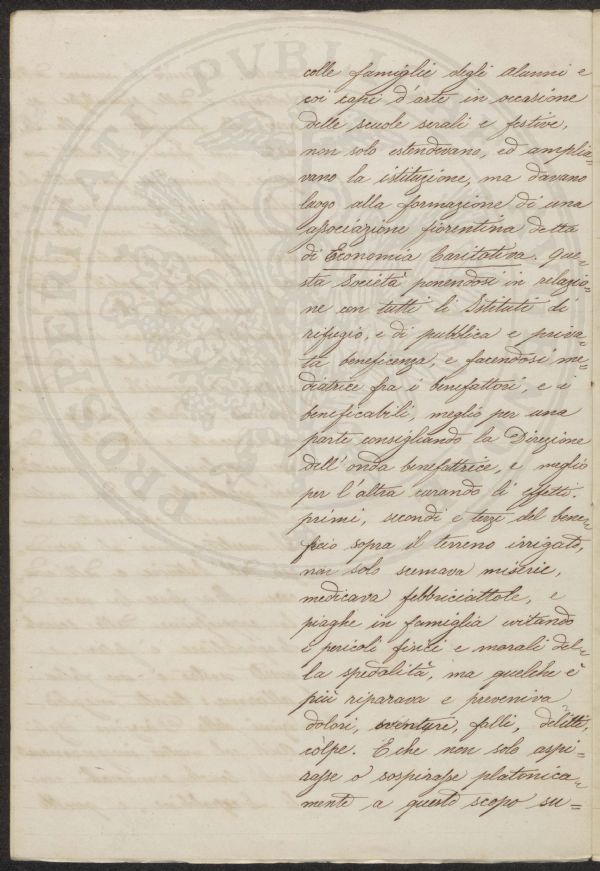 colle famiglie degli alunni e
coi capi d'arte in occasione
delle scuole serali e festive,
non solo estendevano, ed amplia=
vano la istituzione, ma davano
luogo alla formazione di una
associazione fiorentina detta
di Economia Caritativa. Que=
sta Società ponendosi in relazio=
ne con tutti li Istituti di
rifugio, e di pubblica e priva=
ta beneficenza, e facendosi me=
diatrice fra i benefattori, e i
beneficabili, meglio per una
parte consigliando la Direzione
dell'onda benefattrice, e meglio
per l'altra curando li effetti
primi, secondi e terzi del bene=
ficio sopra il terreno irrigato,
non solo scemava miserie,
medicava febbriciattole, e
piaghe in famiglia evitando
i pericoli fisici e morali del=
la spedalità, ma quelche è
più riparava e preveniva
dolori, sventure, falli, delitti,
colpe. E che non solo aspi=
rasse o sospirasse platonica=
mente a questo scopo su=
PROSPERITATI PVBLI